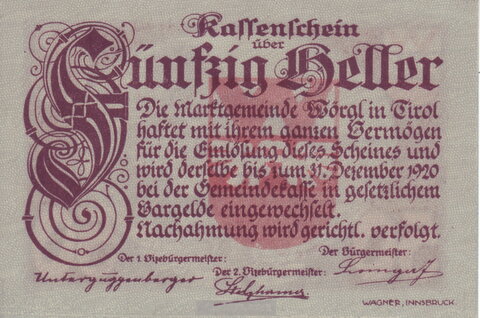 Kassenschein
über
Fünfzig Heller
Die Marktgemeinde Wörgl in Tirol
haftet mit ihrem ganzen Vermögen
für die Einlösung dieses Scheines und
wird derselbe bis zum 31. Dezember 1920
bei der Gemeindekasse in gesetzlichem
Bargelde eingewechselt.
Nachahmung wird gerichtl. verfolgt.
Der 1. Vizebürgermeister: Der Bürgermeister:
Unterguggenberger Der 2. Vizebürgermeister:
WAGNER, INNSBRUCK.